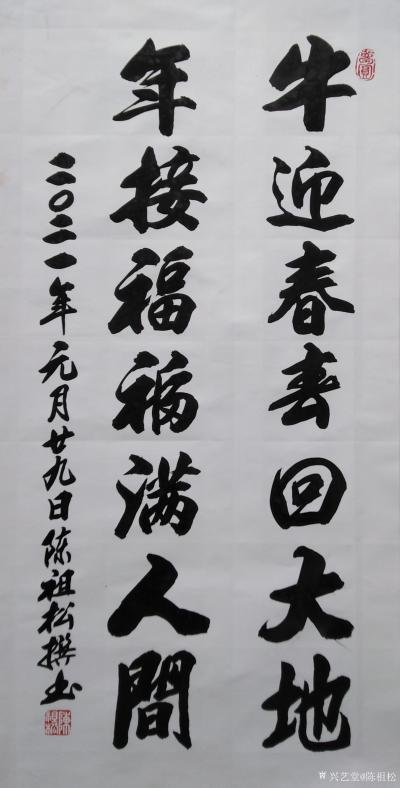 牛迎春春回大地
年接福福满人間
二〇二一年元月廿九日陈祖松撰书
兴艺堂@陈祖松